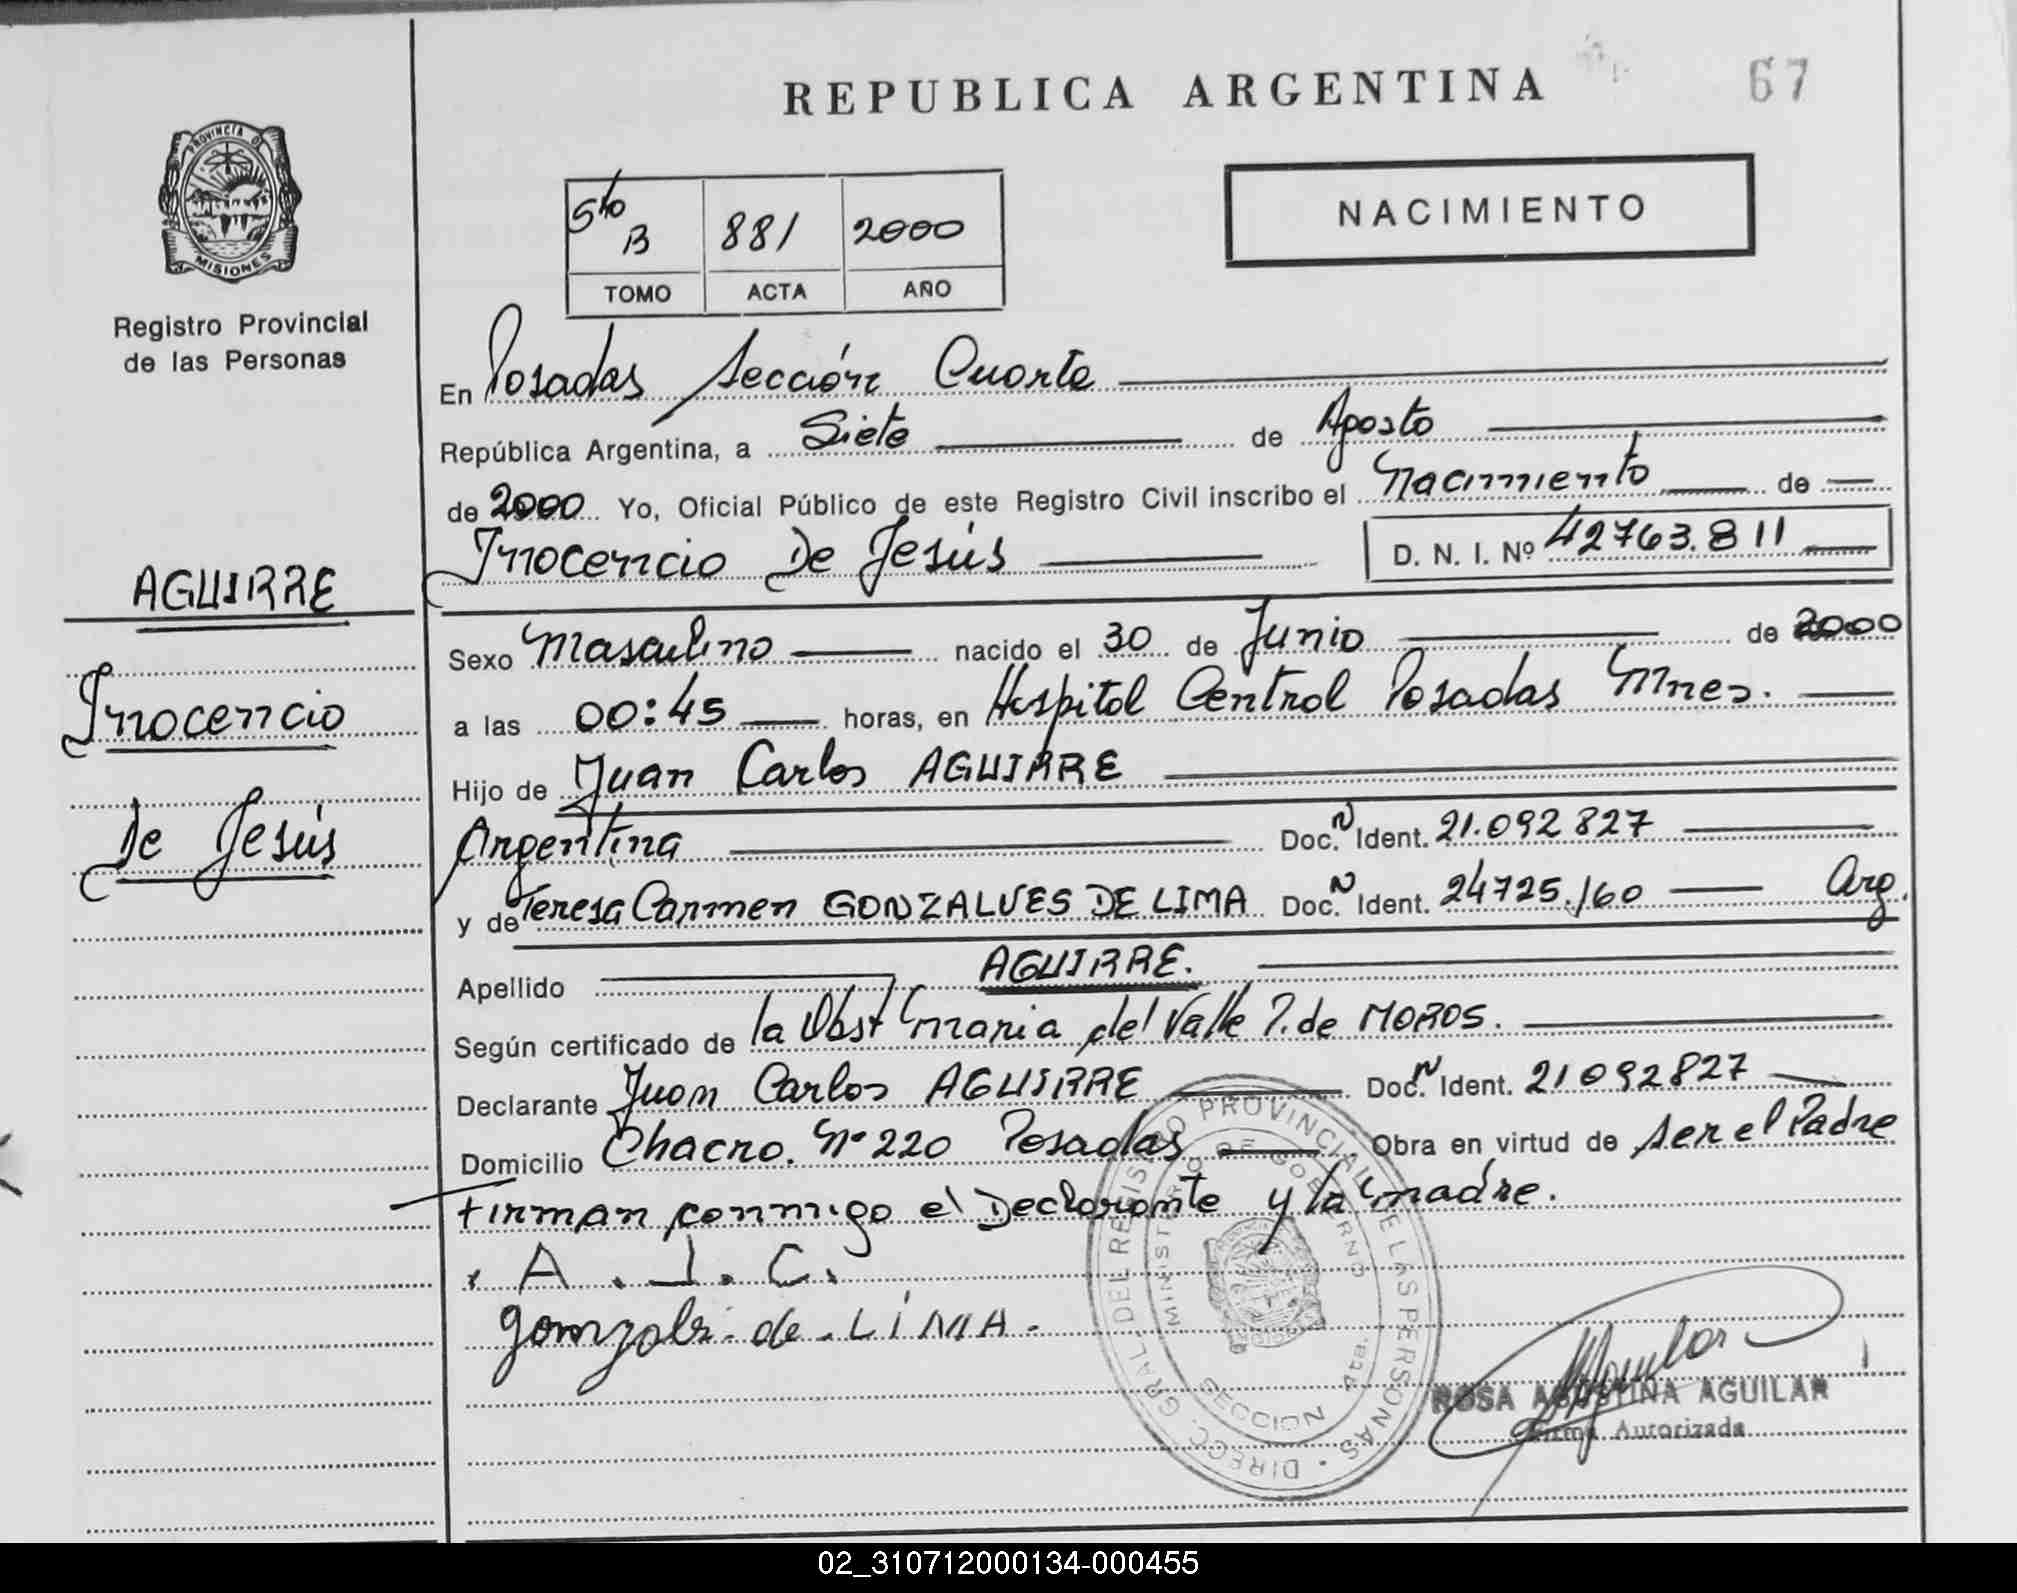 REPUBLICA ARGENTINA
67
PROVINCIA DE
MISIONES
Registro Provincial
de las Personas
5to B 881 2000
TOMO ACTA AÑO
NACIMIENTO
En Posadas Sección Cuarta
República Argentina, a Siete de Agosto
de 2000 Yo, Oficial Público de este Registro Civil inscribo el Nacimiento de
Inocencio De Jesús D. N. I. Nº 42763.811
AGUIRRE
Inocencio
De Jesús
Sexo Masculino nacido el 30 de Junio de 2000
a las 00:45 horas, en Hospital Central Posadas Mnes.
Hijo de Juan Carlos AGUIRRE
Argentina Doc. N Ident. 21.092827
y de Teresa Carmen GONZALVES DE LIMA Doc. N Ident. 24725.160 Arg.
Apellido AGUIRRE.
Según certificado de la Obst Maria del Valle P. de MOROS.
Declarante Juan Carlos AGUIRRE Doc. N Ident. 21092827
Domicilio Chacra. Nº 220 Posadas Obra en virtud de ser el Padre
Firman conmigo el Declarante y la Madre.
. A. J. C.
de LIMA.
DIRECC. GRAL. DEL REGISTRO PROVINCIAL DE LAS PERSONAS
MINISTERIO DE GOBIERNO
SECCION 4ta.
ROSA AGUSTINA AGUILAR
Firma Autorizada
02_310712000134-000455